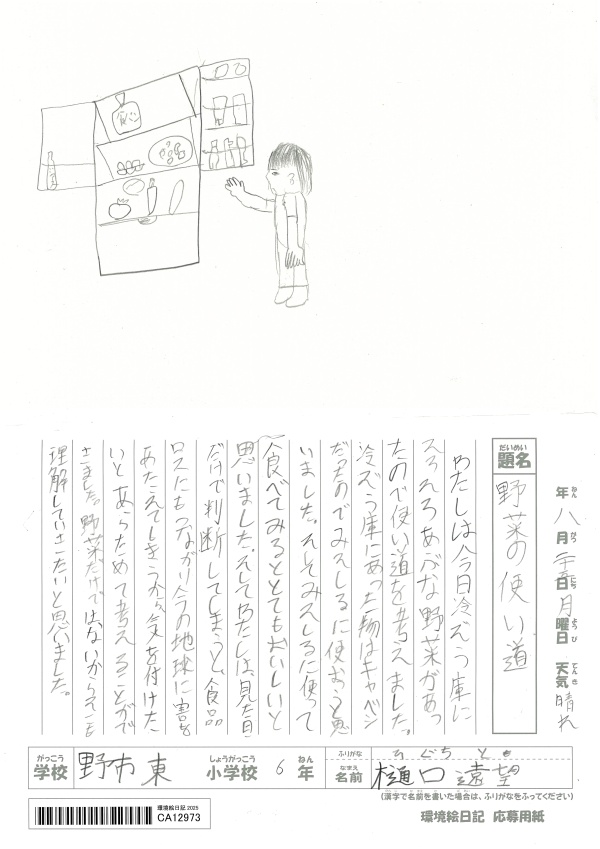 年 八月 二十五日 月曜日 天気 晴れ
ねん がつ にち ようび てんき
だいめい
題名
野菜の使い道
わたしは今日冷ぞう庫に
そろそろあぶな野菜があっ
たので使い道を考えました。
冷ぞう庫にあった物はキャベツ
だったのでみそしるに使おうと思
いました。そしてみそしるに使って
食べてみるととてもおいしいと
思いました。そしてわたしは、見た目
だけで判断してしまうと、食品
ロスにもつながり今の地球に害を
あたえてしまうから、気を付けた
いとあらためて考えることがで
きました。野菜だけではないからそこも
理解していきたいと思いました。
がっこう
学校
野市東
しょうがっこう
小学校
6
ねん
年
ふりがな
ひぐち とき
なまえ
名前
樋口遠望
(漢字で名前を書いた場合は、ふりがなをふってください)
環境絵日記 2025
CA12973
環境絵日記 応募用紙